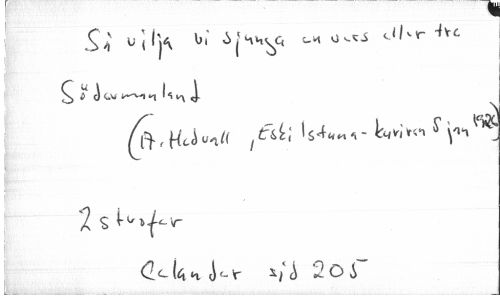 Så vilja vi sjunga en vers eller tre
Södermanland
(A. Hedvall, Eskilstuna-kuriren 5 jan 1926)
2 strofer
Celander sid 205